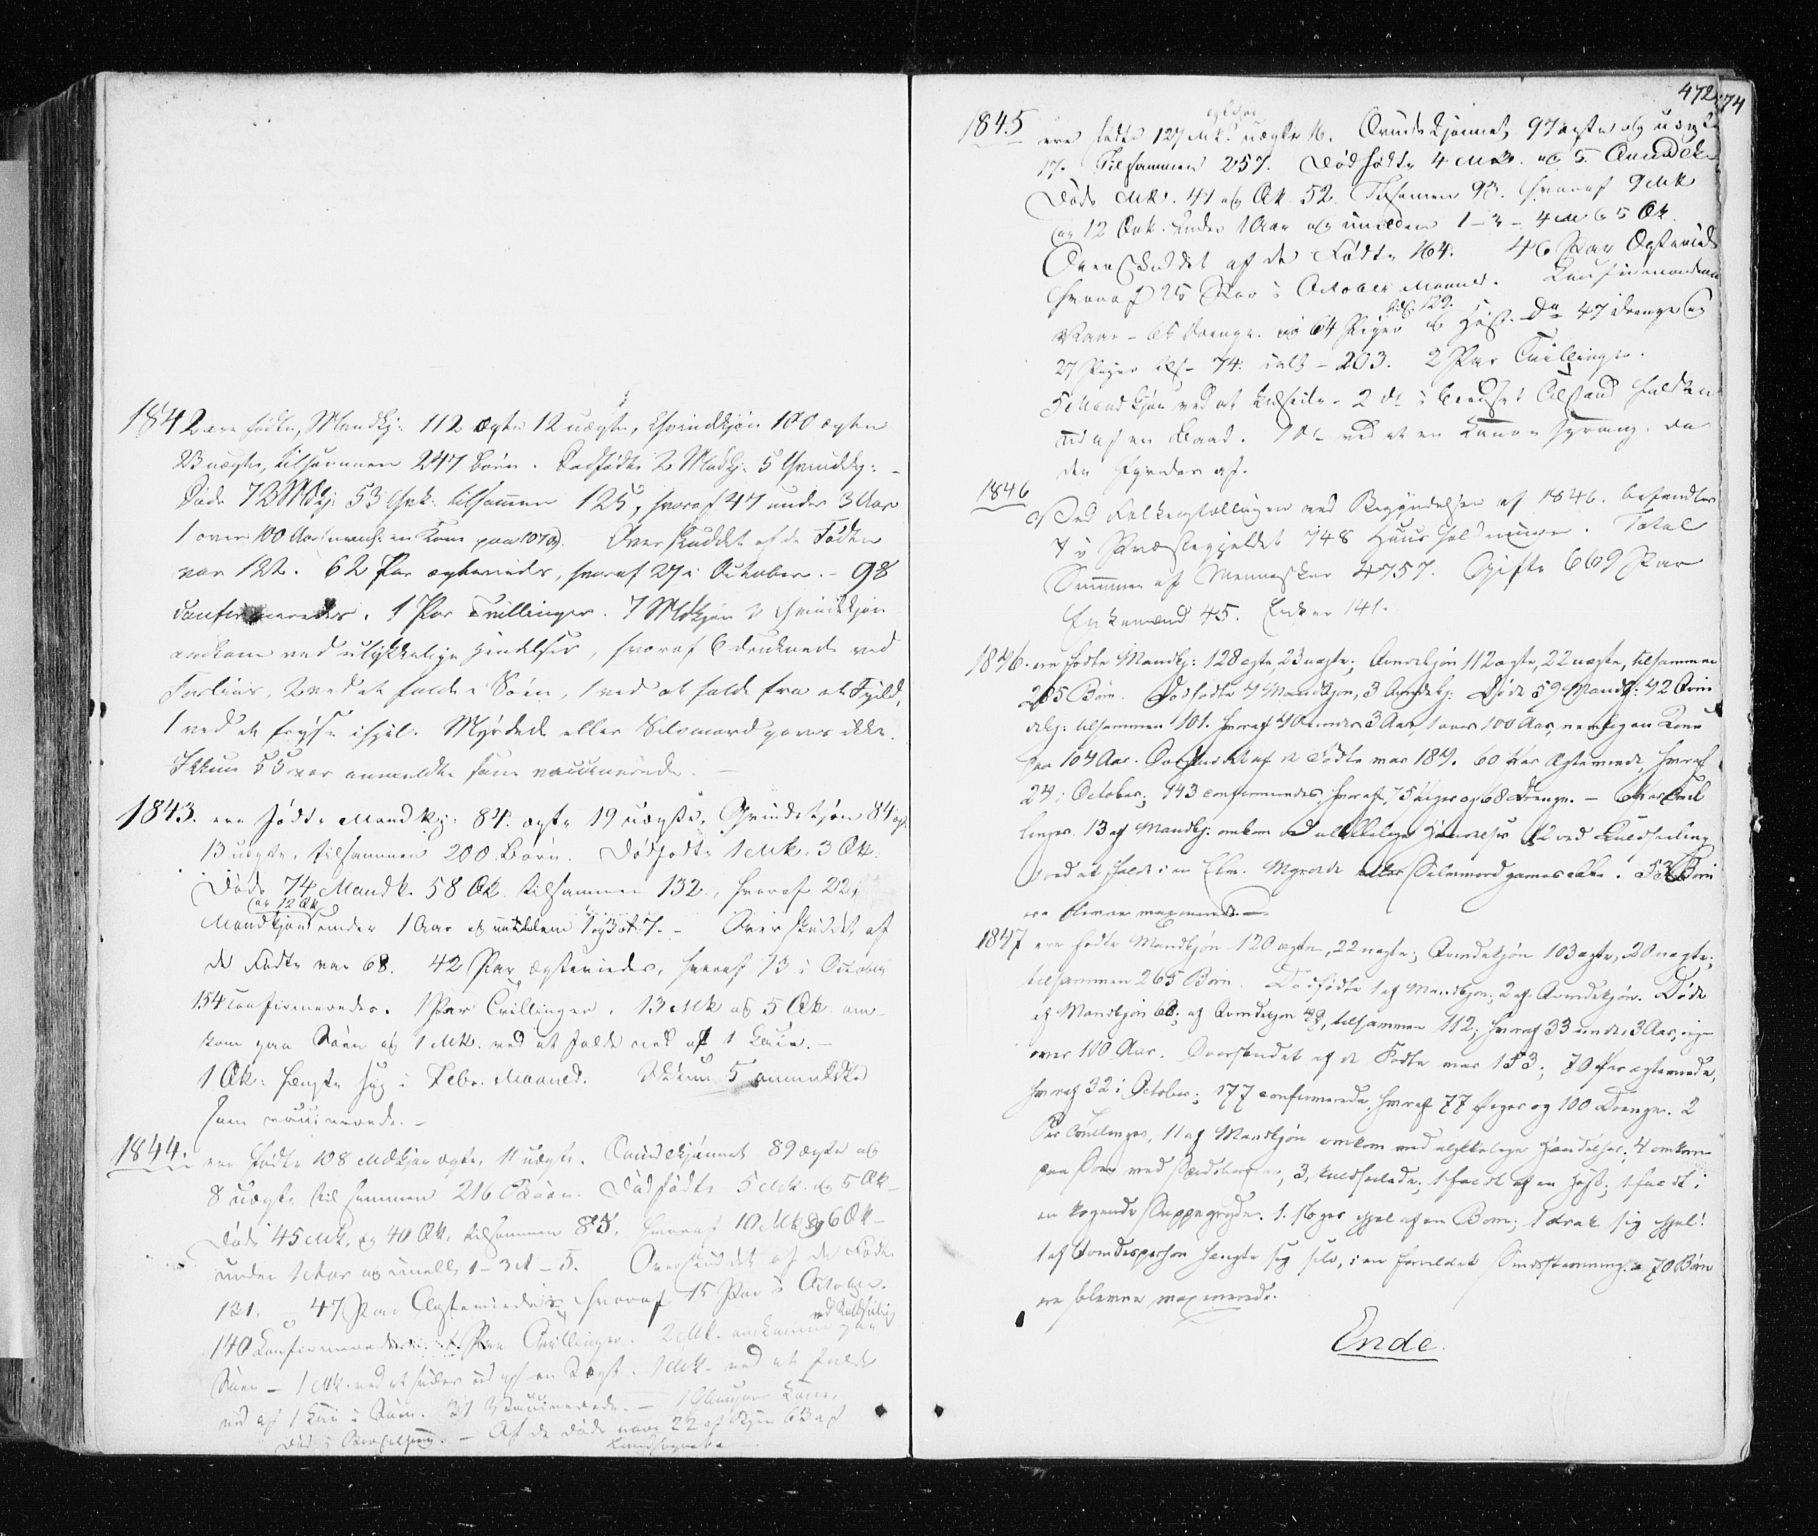 1842 ere fødte, Mandkj: 112 ægte 12 uægte, Qvindekjøn 100 ægte
23 uægte, tilsammen 247 Børn. Dødfødte 2 Mandkj: 5 Qvindkj: -
Døde 72 Mdkj: 53 Qvk: tilsammen 125, hvoraf 47 under 3 Aar
1 over 100 Aar (navnl: en Kone paa 107 ). Overskuddet af de Fødte
var 122. 62 Par ægteviedes, hvoraf 27 i October. - 98
confirmeredes. 1 Par Tvillinger. 7 Mdkjøn Qvindekjøn
omkom ved ulykkelige Hændelser, hvoraf 6 druknede ved
Forliis, 2 ved at falde i Søen, 1 ved at falde fra et Fjeld,
1 ved at fryse ihjel. Myrdede eller Selvmord gaves ikke.
Ikkun 55 var anmeldte som vaccinerede. -
1843. ere fødte Mandkj: 84. ægte 19 uægte, Qvindekjøn 84 ægt
13 uægte, tilsammen 200 Børn. Dødfødte 1 Mk. 3 Qk.
Døde 74 Mandk. 58 Qk. tilsammen 132, hvoraf 22
og 12 Qk
Mandkjøn under 1 Aar og imellem 1 og 3 at 7. - Overskuddet af
de Fødte var 68. 42 Par ægteviedes, hvoraf 13 i October
154 confirmeredes. 1 Par Tvillinger. 13 Mk og 5 Qk om-
kom paa Søen og 1 Mk. ved at falde ned af 1
1 Qk: hængte sig i Febr. Maaned. Ikkun 5 anmeldte
som vaccinerede. -
1844. ere fødte 108 Mdkjøn ægte, 11 uægte. Qvindekjønnet 89 ægte og
8 uægte tilsammen 216 Børn. Dødfødte 5 Mk. og 5 Qk -
Døde 45 Mk, og 40 Qk, tilsammen 85, hvoraf 10 Mk og 6 Qk -
under 1 Aar og imellem 1 - 3 At - 5. Overskuddet af de Fødte
121. - 47 Par Ægteviede, hvoraf 15 Par i October.
140 Confirmerede. Par Tvillinger. 2 Mk. omkomne paa
Søen - 1 Mk. ved at falde ud af en . 1 Mk. ved at falde
ned af 1 . 31 Vaccinerede. - 1 Kone
død i . - Af de døde vare 22 af 63 af
472 74
1845 ere fødte 127 Mk. uægte 16. Qvindekjønnet 97 ægte og uægte
17. Tilsammen 257. Dødfødte 4 Mk. og 5 Qvindek
Døde Mk. 41 og Qk 52. Tilsamen 93. hvoraf 9 Mk
og 12 Qvk. under 1 Aar og imellem 1 - 3 - 4 M og 5 Qk.
Overskuddet af de Fødte 164. 46 Par Ægteviede
hvoraf 25 Par i October Maaned. Confirmerede
Vaar - 65 Drenge og 64 Piger og Høst. Do 47 Drenge og
27 Piger tils. 74. ialt - 203. 2 Par Tvillinger.
5 Mandkjøn ved at - 2 do i Tilstand falden
ud af en Baad. 1 do ved at en Kanon sprang da
den fyredes af.
1846
Ved Folketællingen ved Begyndelsen af 1846. befandtes
i Præstegjeldet 748 Huusholdninger. Total
Summen af Mennesker 4757. Gifte 669 Par
Enkemænd 45. Enker 141.
1846. ere fødte Mandkj: 128 ægte 23 uægte; Qvindekjøn 112 ægte, 22 uægte, tilsammen
285 Børn. Dødfødte 4 Mandkjøn, 3 Qvindekj: Døde 59 Mandkj: 42 Qvin
dekj: tilsammen 101. hvoraf 40 under 3 Aar, 1 over 100 Aar, nemlig en Kone
paa 104 Aar. Overskuddet af de Fødte var 184. 60 Par Ægteviede, hvoraf
24 i October; 143 confirmeredes hvoraf 75 Piger og 68 Drenge. - 6 Par Tvil
linger. 13 af Mandkj: omkom ved ulykkelige Hændelser 12 ved Kuldseiling
1 ved at falde i en Elv. Myrdede eller Selvmord gaves ikke. 53 Børn
ere blevne vaxinerede. -
1847 ere fødte Mandkjøn 120 ægte, 22 uægte; Qvindekjøn 103 ægte, 20 uægte;
tilsammen 265 Børn. Dødfødte 1 af Mandkjøn; 2 af Qvindekjøn. Døde
af Mandkjøn 63; af Qvindekjøn 49, tilsammen 112; hvoraf 33 under 3 Aar, ingen
over 100 Aar. Overskuddet af de Fødte var 153; 70 Par ægteviede,
hvoraf 32 i October; 177 confirmerede, hvoraf 77 Piger og 100 Drenge. 2
Par Tvillinger, 11 af Mandkjøn omkom ved ulykkelige Hændelser; 4 omkom
paa Søen ved , 3, kuldseilede; 1 faldt af en Hest; 1 faldt i
en kogende Suppegryde. 1. sloges ihjel af en Bom; 1 drak sig ihjel!
1 af Qvindesperson hængte sig selv, i en forvildet Sindsstemning. 70 Børn
ere blevne vaxinerede.
Ende.